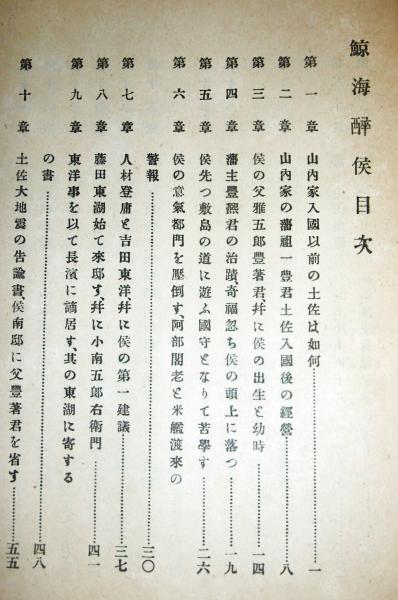 鯨海醉侯目次
第一章 山內家入國以前の土佐は如何……一
第二章 山內家の藩祖一豐君土佐入國後の經營……八
第三章 侯の父雅五郎豐著君、幷に侯の出生と幼時……一四
第四章 藩主豐熈君の治蹟、奇福忽ち侯の頭上に落つ……一九
第五章 侯先つ敷島の道に遊ふ國守となりて苦學す……二六
第六章 侯の意氣都門を壓倒す、阿部閣老と米艦渡來の
警報……三〇
第七章 人材登庸と吉田東洋幷に侯の第一建議……三七
第八章 藤田東湖始て來邸す、幷に小南五郎右衛門……四一
第九章 東洋事を以て長濱に謫居す、其の東湖に寄する
の書……四八
第十章 土佐大地震の告諭書、侯南邸に父豐著君を省す……五五